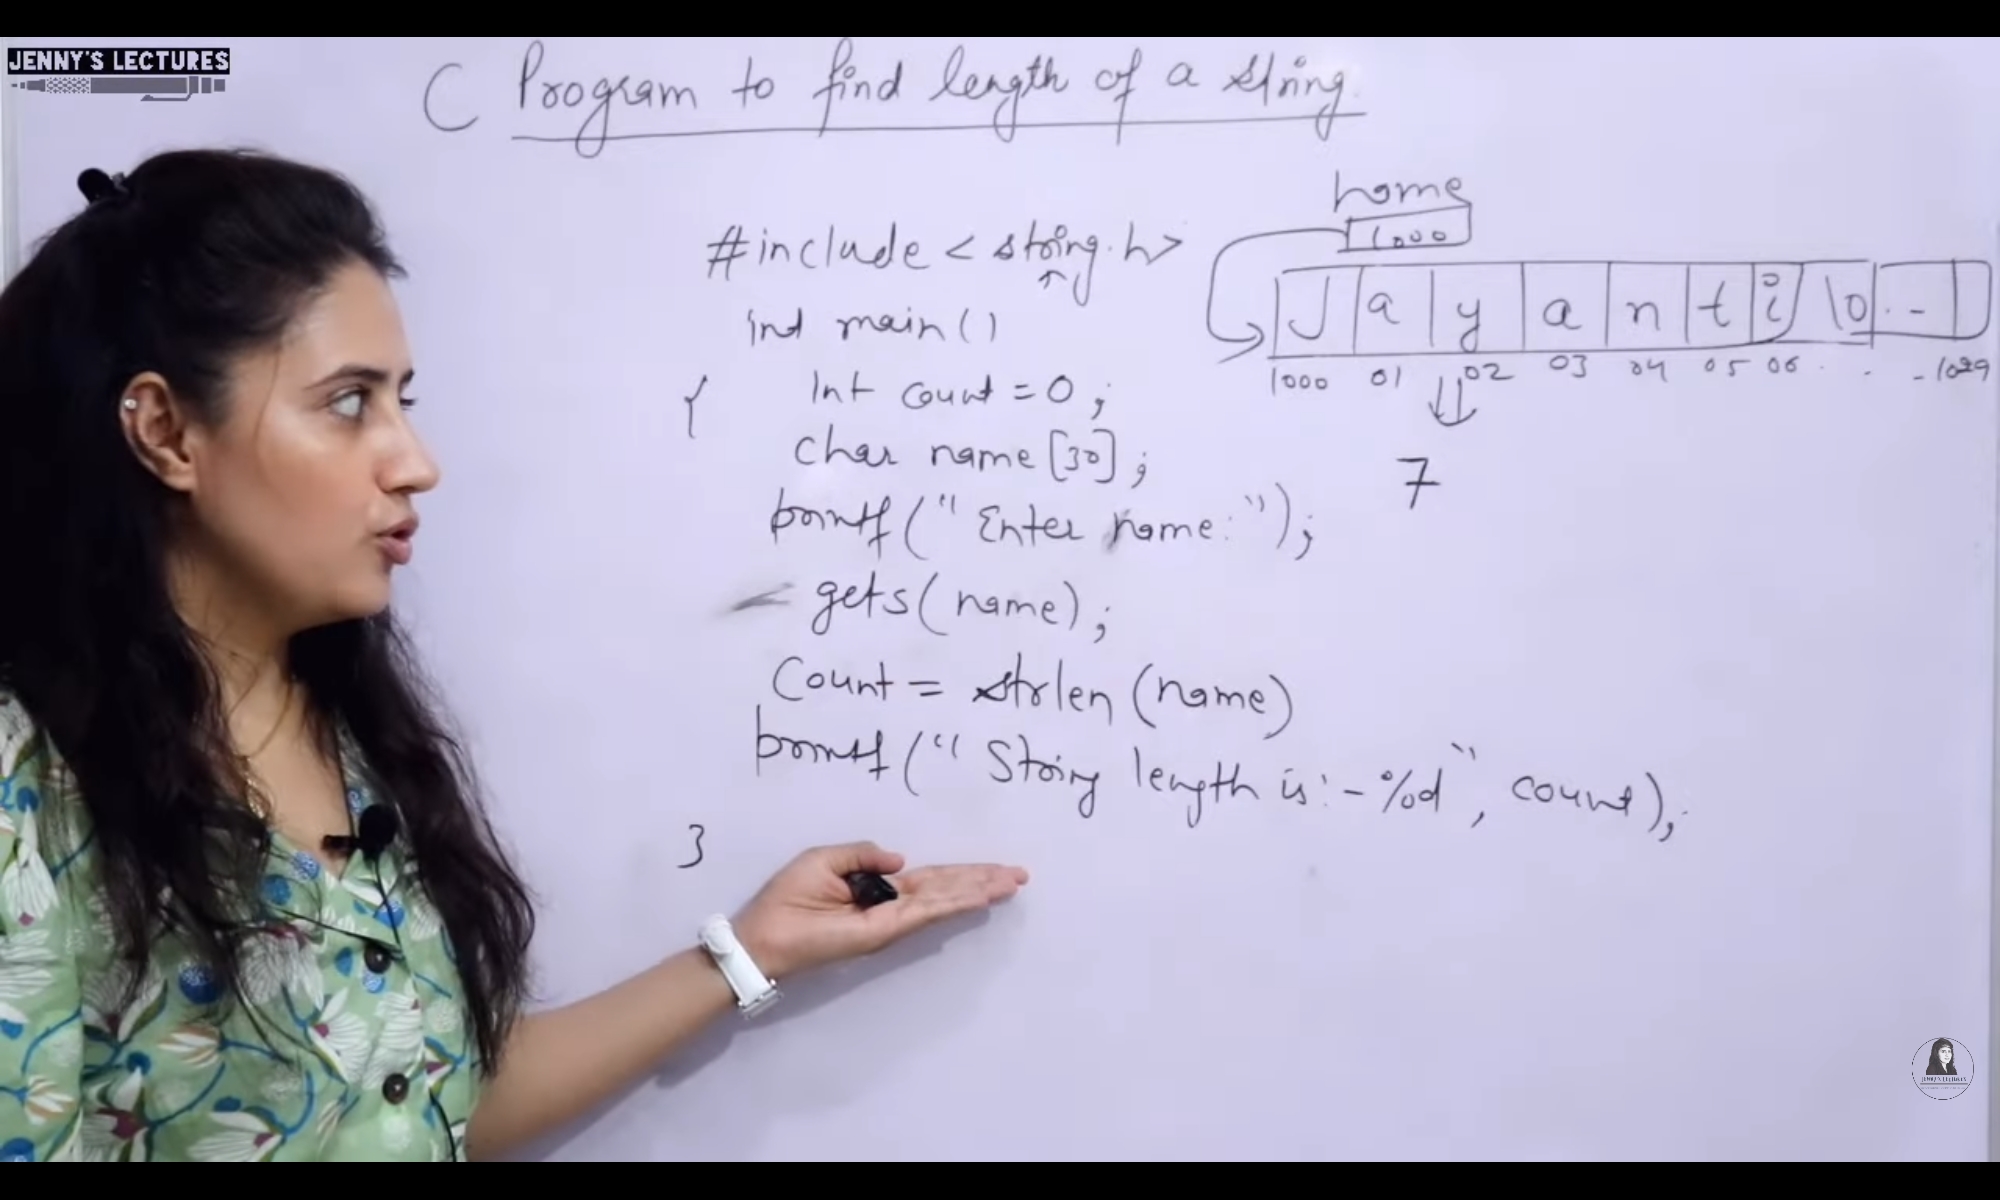 JENNY'S LECTURES
C Program to find length of a string.
#include <string.h>
int main()
{
int count = 0;
char name[30];
printf("Enter name:");
gets(name);
Count = strlen(name)
printf("String length is:-%d", count);
}
name
1000
J a y a n t i \0 . -
1000 01 02 03 04 05 06 . . - 1029
7
JENNY'S LECTURES